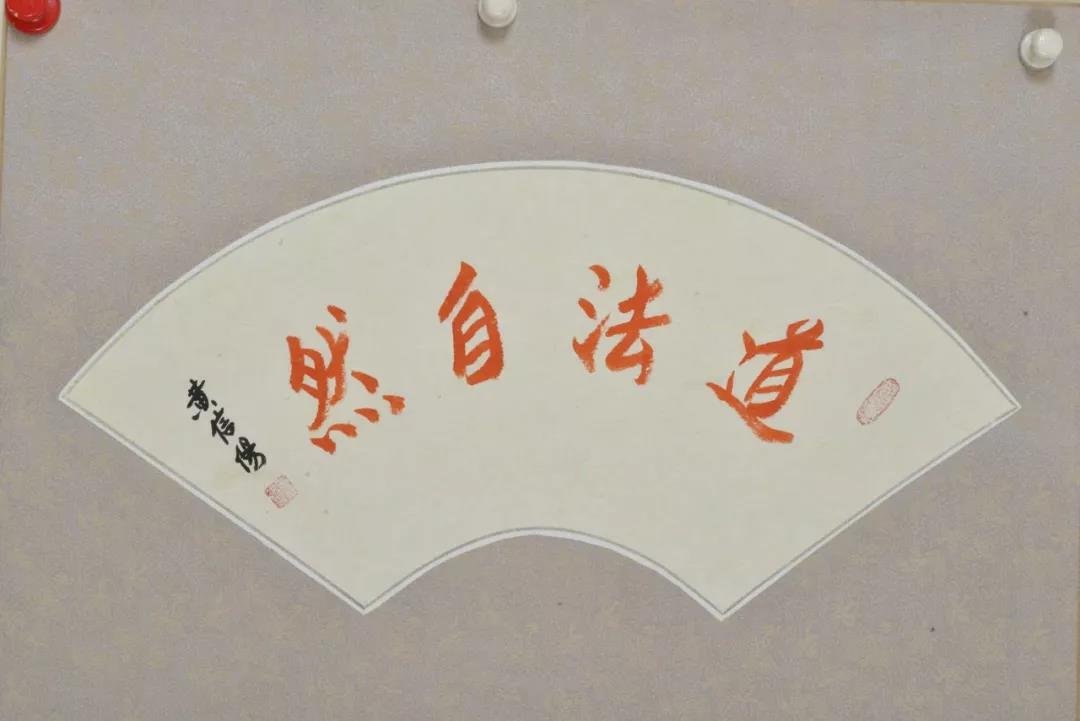 道法自然
黄信陽